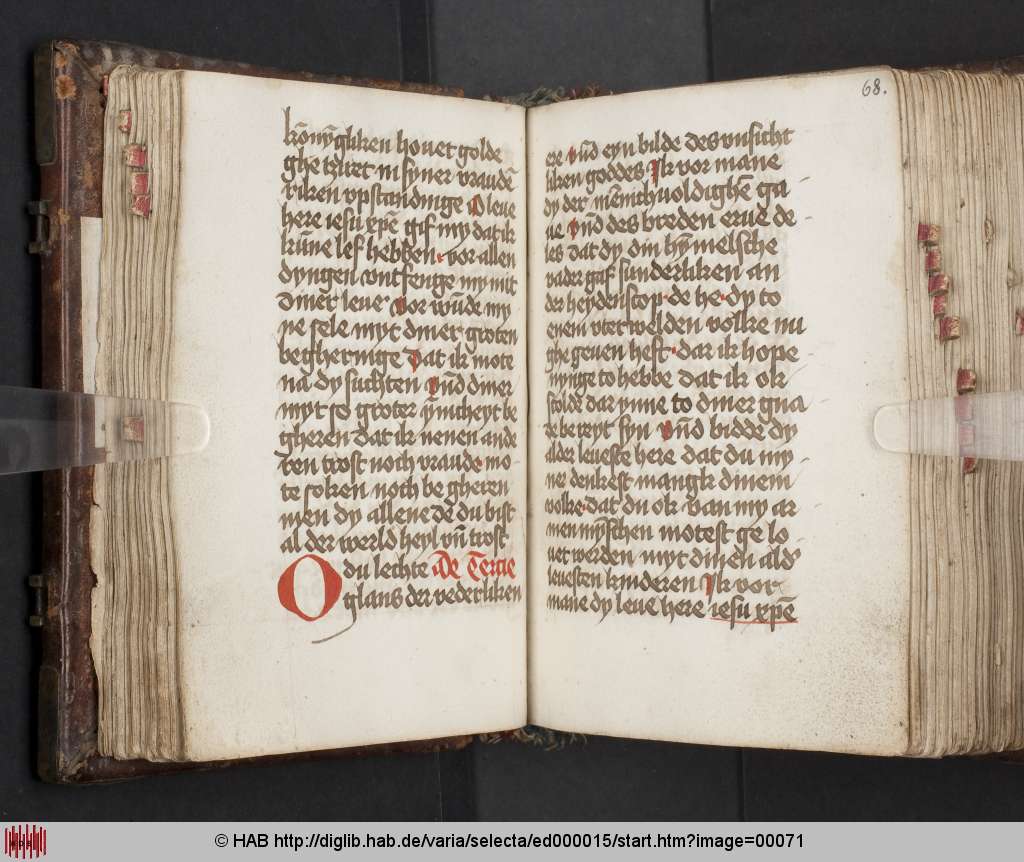 kōnȳgliken houet golde
ghe tziret in syner vraudē
riken vpstandinge O leue
here iesu xp̄e gif my dat ik
kūne lef hebben vor allen
dyngen vntfenge my mit
diner leue vor wūde my
ne sele myt diner groten
begheringe dat ik mote
na dy suchten vnd diner
myt so groter ynicheyt be
gheren dat ik nenen ande
ren trost noch vraude mo
te soken noch be gheren
men dy allene de du bist
al der werld heyl vn̄ trost
O du lechte De Tercie
glans der vederliken
ere vn̄d eyn bilde des vnsicht
liken goddes Ik vor mane
dy der mēnichuoldighē ga
ue vn̄d des breden erue de
les dat dy din hȳmelsche
vader gaf sunderliken an
der heydenscop de he dy to
enem vterwelden volke nu
ghe geuen heft dar ik hope
nynge to hebbe dat ik ok
scolde dar ynne to diner gna
de bereyt syn vn̄d bidde dy
alder leueste here dat du my
ner denkest mangk dinem
volke dat du ok van my ar
men mȳschen motest ge lo
uet werden myt dinen ald'
leuesten kinderen Ik vor
mane dy leue here iesu xp̄e
68.
© HAB http://diglib.hab.de/varia/selecta/ed000015/start.htm?image=00071